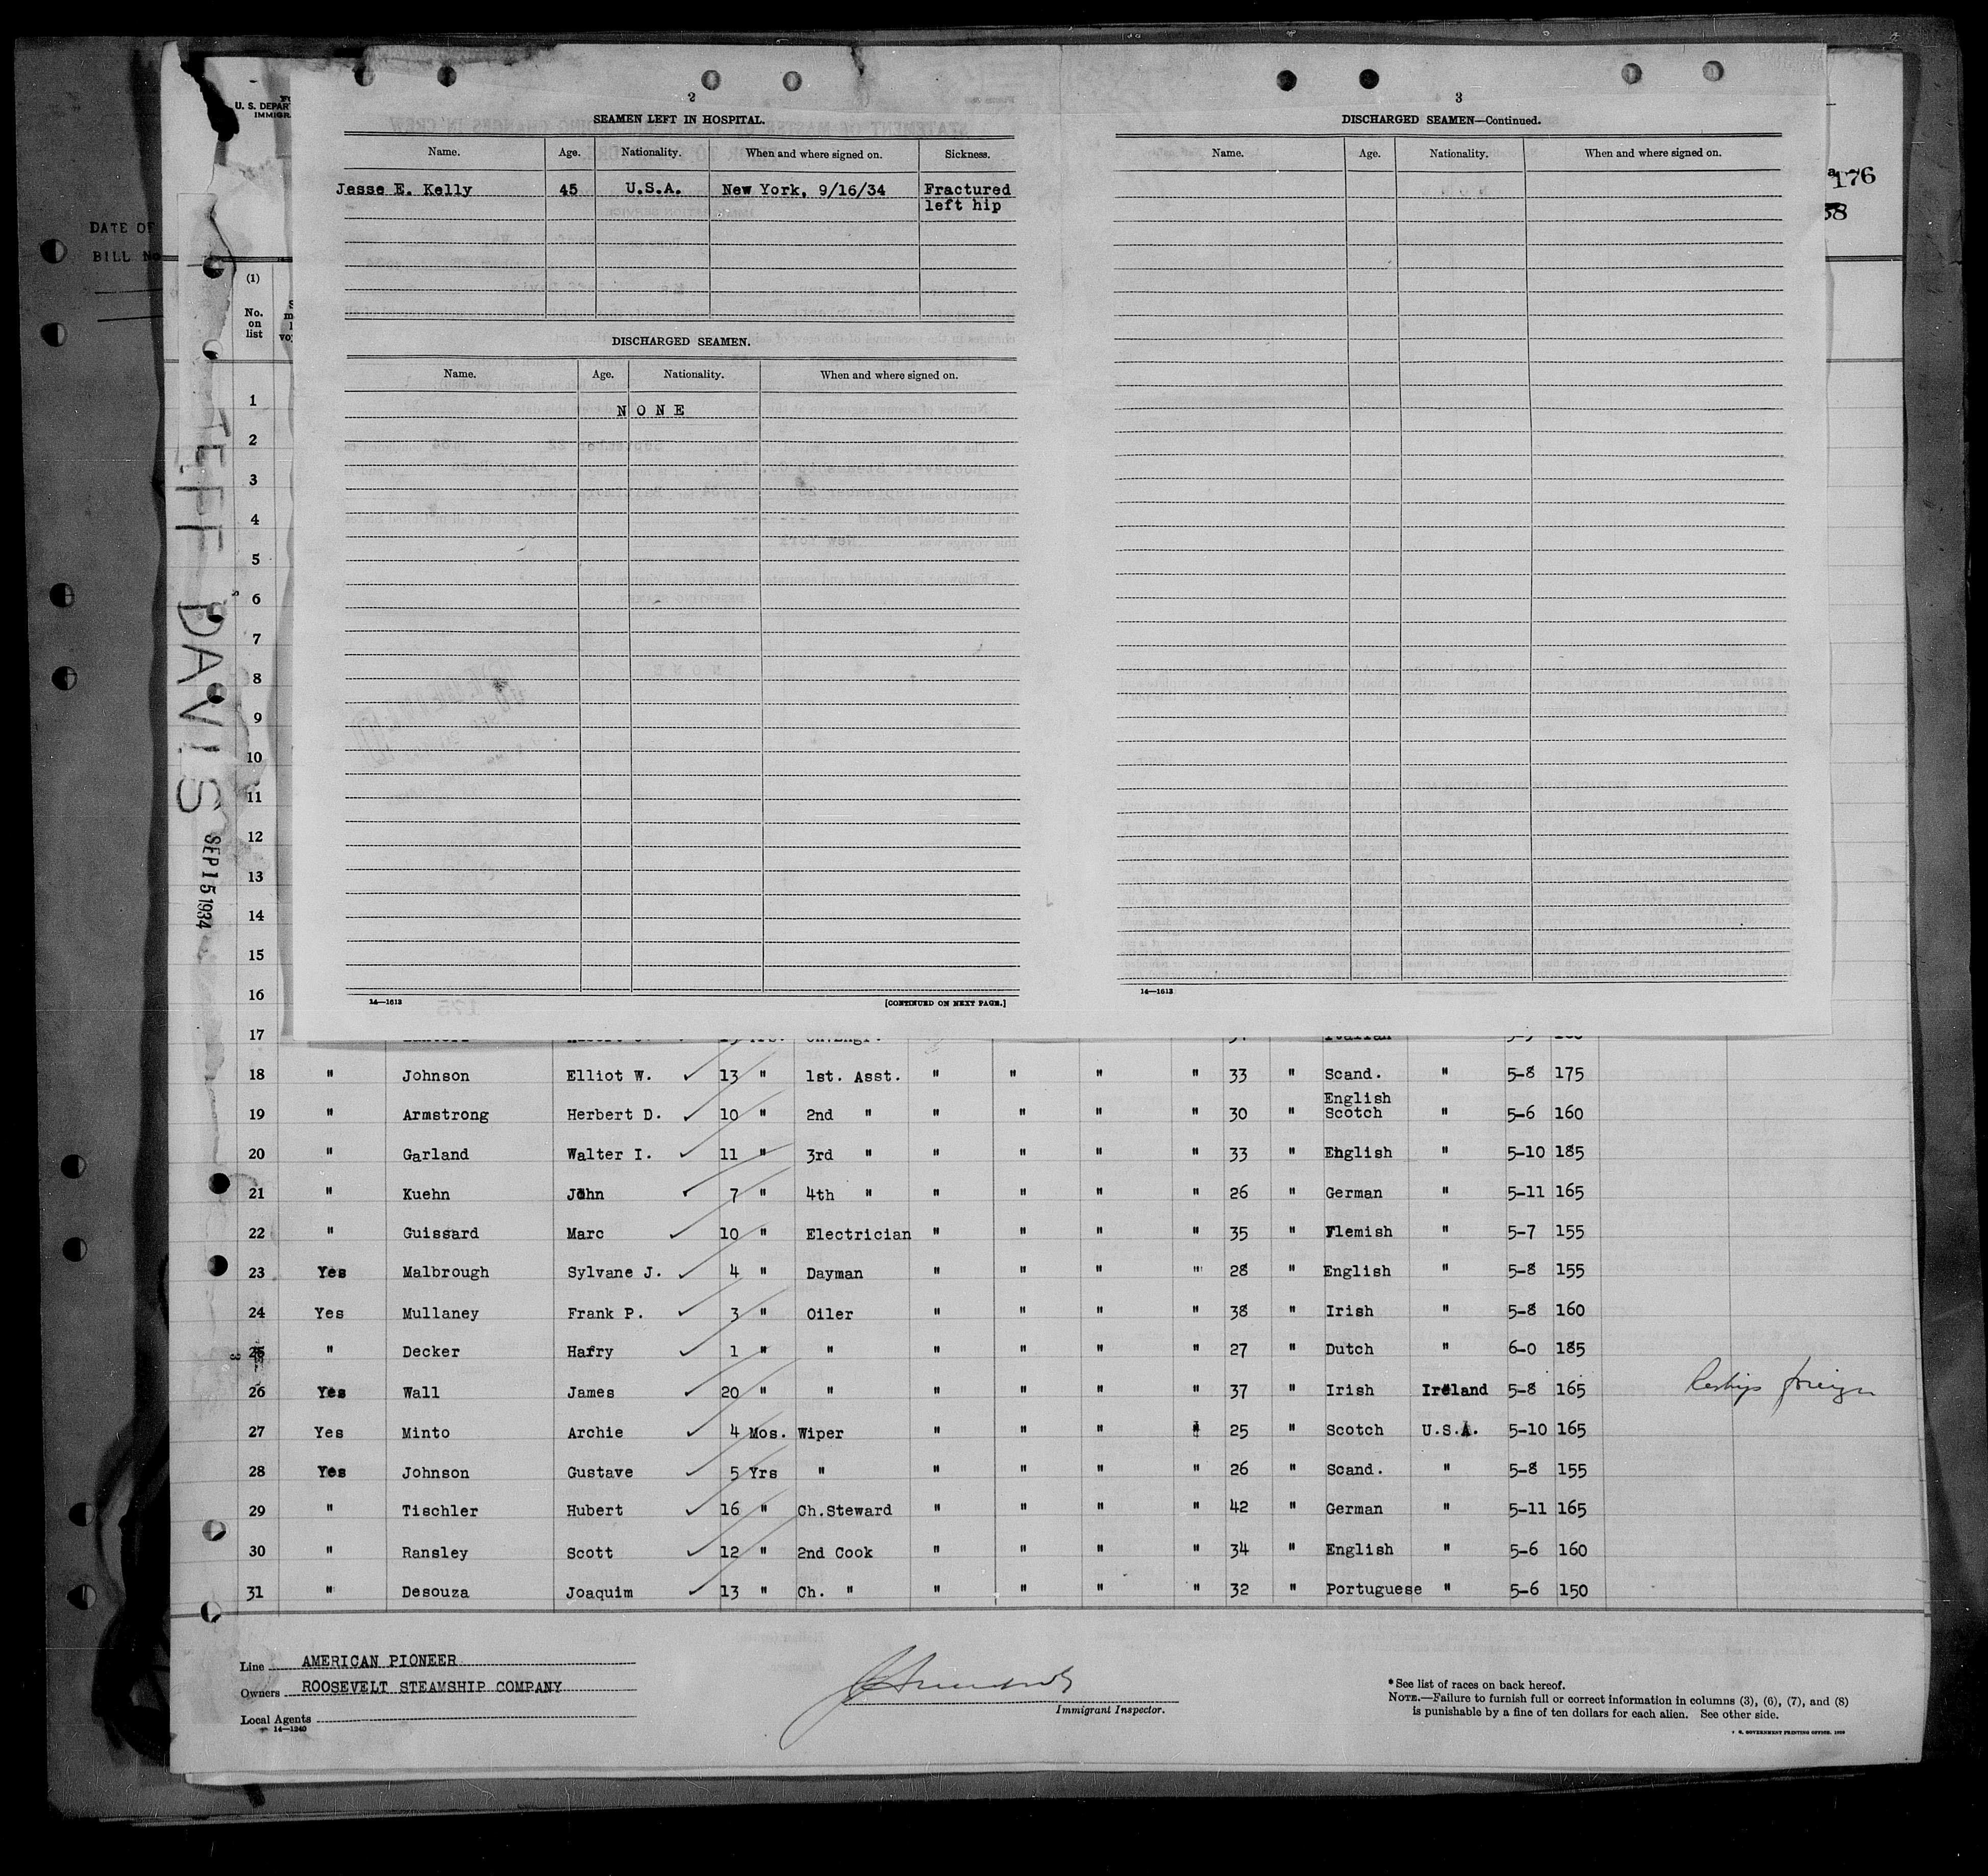 2
SEAMEN LEFT IN HOSPITAL.
Name. Age. Nationality. When and where signed on. Sickness.
Jesse E. Kelly 45 U.S.A. New York, 9/16/34 Fractured
left hip
DISCHARGED SEAMEN.
Name. Age. Nationality. When and where signed on.
NONE
14—1613
[CONTINUED ON NEXT PAGE.]
3
DISCHARGED SEAMEN—Continued.
Name. Age. Nationality. When and where signed on.
14—1613
U. S. DEPAR
IMMIGR
176
38
DATE OF
BILL No
(1)
No.
on
list
JEFF DAVIS
SEP 15 1934
1
2
3
4
5
6
7
8
9
10
11
12
13
14
15
16
17
18 " Johnson Elliot W. ✓ 13 " 1st. Asst. " " " " 33 " Scand. " 5-8 175
English
19 " Armstrong Herbert D. ✓ 10 " 2nd " " " " " 30 " Scotch " 5-6 160
20 " Garland Walter I. ✓ 11 " 3rd " " " " " 33 " English " 5-10 185
21 " Kuehn John ✓ 7 " 4th " " " " " 26 " German " 5-11 165
22 " Guissard Marc ✓ 10 " Electrician " " " " 35 " Flemish " 5-7 155
23 Yes Malbrough Sylvane J. ✓ 4 " Dayman " " " " 28 " English " 5-8 155
24 Yes Mullaney Frank P. ✓ 3 " Oiler " " " " 38 " Irish " 5-8 160
25 " Decker Harry ✓ 1 " " " " " " 27 " Dutch " 6-0 185
26 Yes Wall James ✓ 20 " " " " " " 37 " Irish Ireland 5-8 165 Reships foreign
27 Yes Minto Archie ✓ 4 Mos. Wiper " " " " 25 " Scotch U.S.A. 5-10 165
28 Yes Johnson Gustave ✓ 5 Yrs " " " " " 26 " Scand. " 5-8 155
29 " Tischler Hubert ✓ 16 " Ch.Steward " " " " 42 " German " 5-11 165
30 " Ransley Scott ✓ 12 " 2nd Cook " " " " 34 " English " 5-6 160
31 " Desouza Joaquim ✓ 13 " Ch. " " " " " 32 " Portuguese " 5-6 150
Line AMERICAN PIONEER
Owners ROOSEVELT STEAMSHIP COMPANY
Local Agents
14—1240
Immigrant Inspector.
*See list of races on back hereof.
NOTE.—Failure to furnish full or correct information in columns (3), (6), (7), and (8)
is punishable by a fine of ten dollars for each alien. See other side.
U. S. GOVERNMENT PRINTING OFFICE. 1929